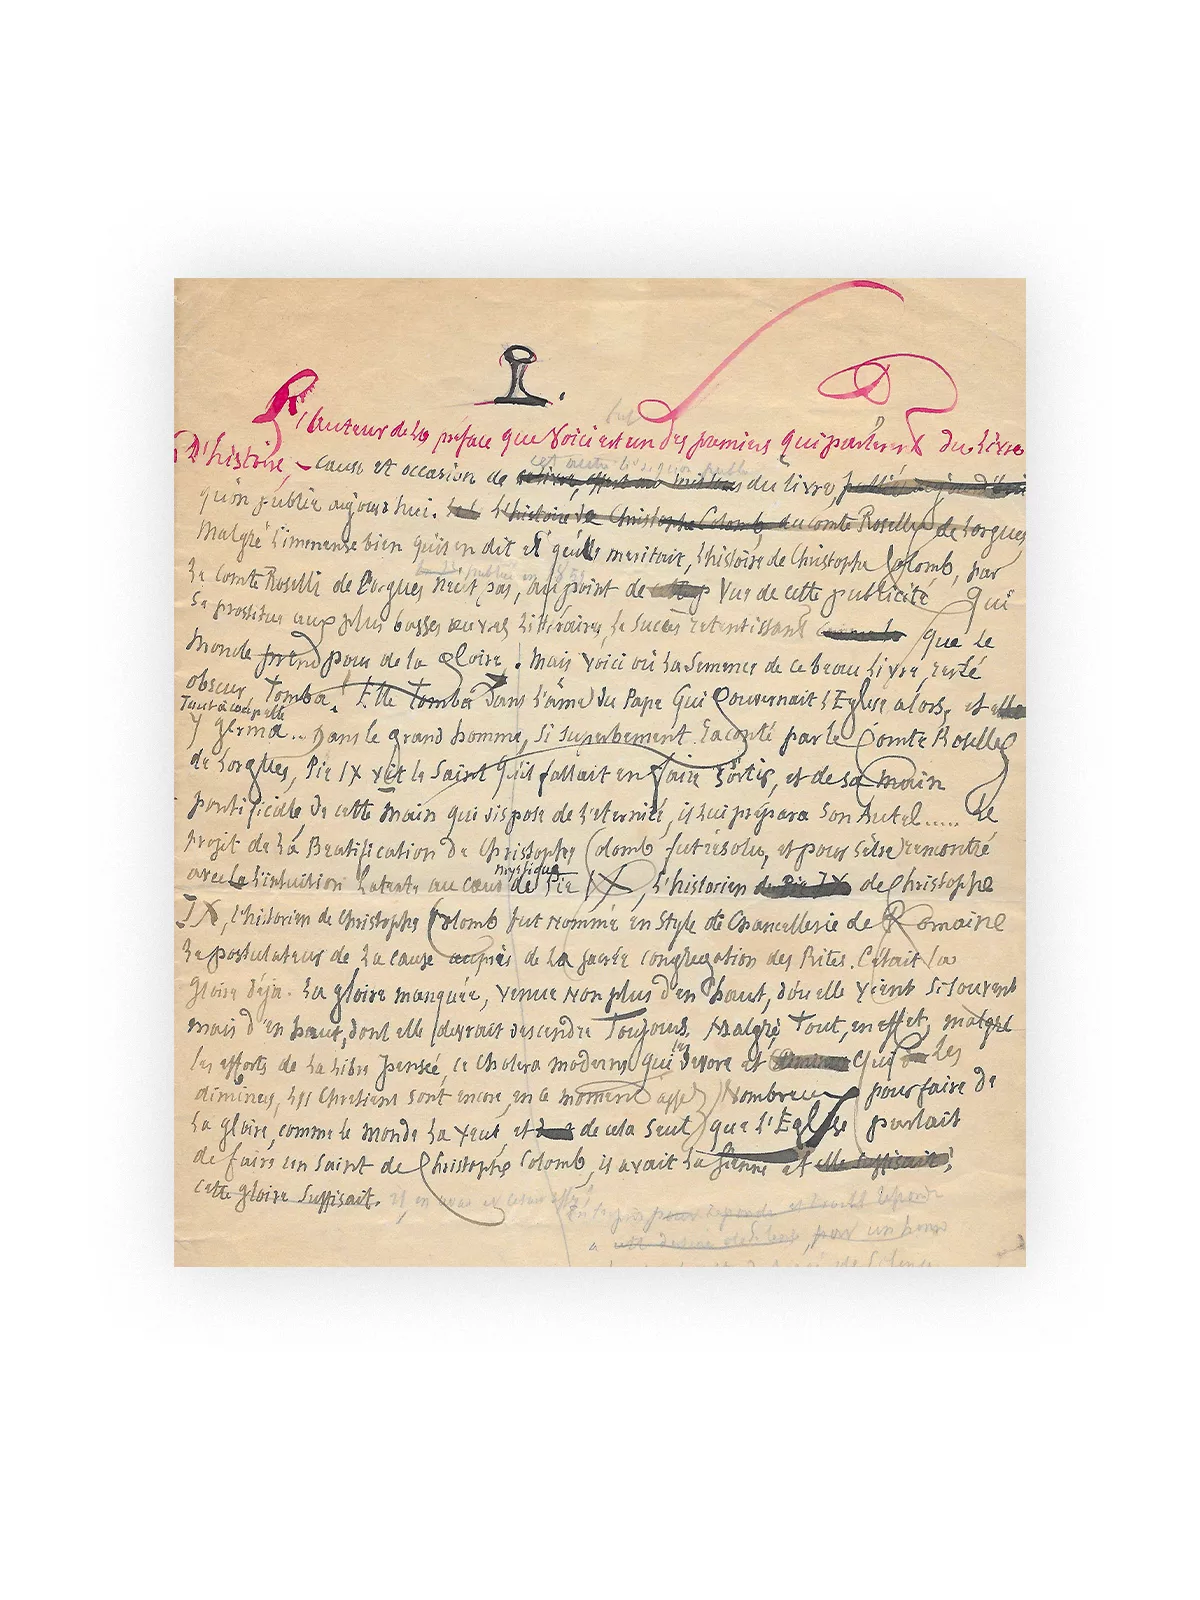 I.
L'auteur de la préface que voici est un des premiers qui parlèrent du livre
D'histoire, – cause et occasion de du livre,
qu'on publie aujourd'hui. L'histoire de Christophe Colomb, du comte Roselly de Lorgues,
Malgré l'immense bien qu'is en dit et qu'elle meritait, l'histoire de Christophe Colomb, par
Le Comte Roselli de Lorgues n'eut pas, au point de Vue de cette publicité qui
se prostitue aux plus basses œuvres littéraires, le succès retentissant que le
Monde prend pour de la Gloire. Mais voici où la semence de ce beau livre, resté
obscur, Tomba. Elle Tomba Dans l'âme du Pape qui Gouvernait l'Eglise alors, et elle
Tout à coup elle
y germa... Dans le grand homme, si superbement raconté par le Comte Roselly
de Lorgues, Pie IX vit le Saint qu'il fallait en faire sortir, et de sa main
pontificale de cette main qui dispose de l'eternité, il lui prépara son Autel..... Le
projet de la Béatification de Christophe Colomb fut résolu, et pour s'être rencontré
mystique
avec la l'intuition latente au cœur de Pie IX, l'historien de Pie IX de Christophe
IX, l'historien de Christophe Colomb fut nommé en style de Chancellerie de Romaine
le postulateur de la cause auprès de la sacrée congrégation des Rites. C'etait la
Gloire déja. La gloire manquée, venue non plus d'en bas, d'où elle vient si souvent
mais d'en haut, dont elle devrait descendre Toujours. Malgré Tout, en effet, malgré
les efforts de la libre pensée, ce cholera moderne qui devore et qui les
diminue, les Chretiens sont encore, en ce moment assez Nombreux pour faire de
la gloire, comme le monde la veut et de cela seul que l'Eglise parlait
de faire un Saint de Christophe Colomb, il avait la sienne et elle suffisait!
cette gloire suffisait.